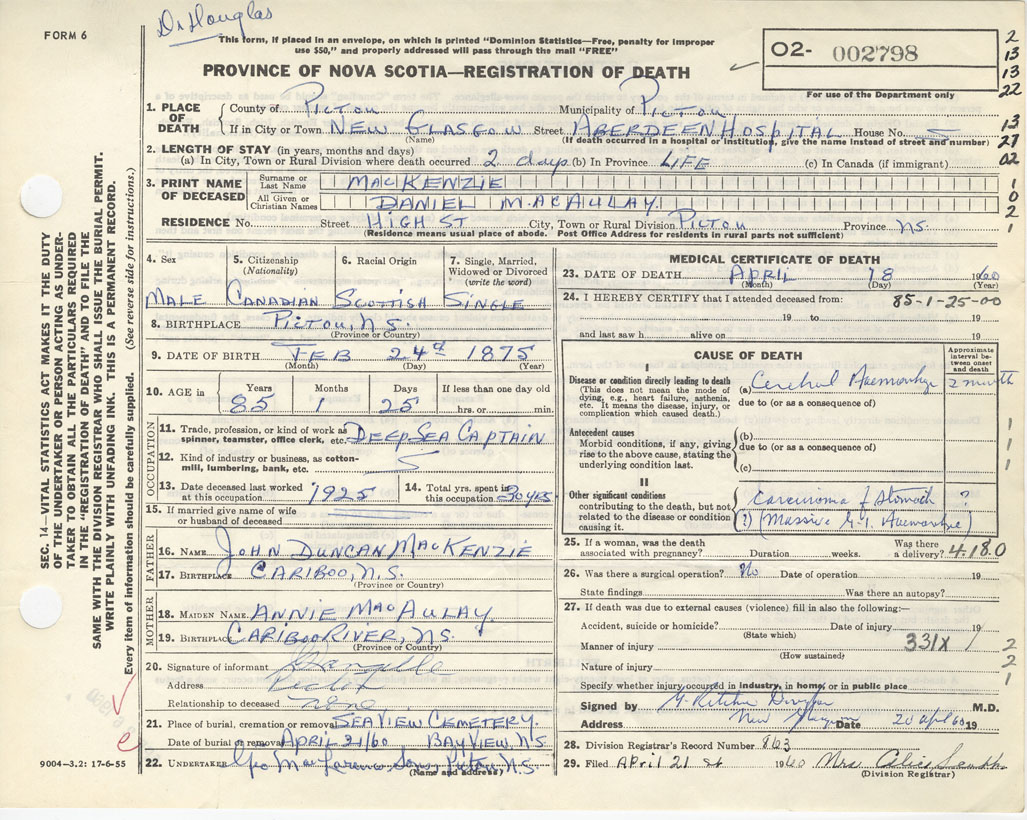 Dr Douglas
FORM 6
This form, if placed in an envelope, on which is printed "Dominion Statistics—Free, penalty for improper
use $50," and properly addressed will pass through the mail "FREE"
PROVINCE OF NOVA SCOTIA—REGISTRATION OF DEATH
O2- 002798
For use of the Department only
2
13
13
22
13
27
02
1
0
2
1
1. PLACE OF DEATH County of Pictou Municipality of Pictou
If in City or Town New Glasgow Street Aberdeen Hospital House No.
(Name) (If death occurred in a hospital or institution, give the name instead of street and number)
2. LENGTH OF STAY (in years, months and days)
(a) In City, Town or Rural Division where death occurred 2 days (b) In Province LIFE (c) In Canada (if immigrant)
3. PRINT NAME OF DECEASED Surname or Last Name MacKENZIE
All Given or Christian Names DANIEL MACAULAY
RESIDENCE No. Street HIGH ST City, Town or Rural Division PICTOU Province N.S.
(Residence means usual place of abode. Post Office Address for residents in rural parts not sufficient)
4. Sex 5. Citizenship (Nationality) 6. Racial Origin 7. Single, Married, Widowed or Divorced (write the word)
Male Canadian Scottish Single
8. BIRTHPLACE Pictou, N.S.
(Province or Country)
9. DATE OF BIRTH FEB 24th 1875
(Month) (Day) (Year)
10. AGE in Years 85 Months 1 Days 25 If less than one day old hrs. or min.
OCCUPATION
11. Trade, profession, or kind of work as spinner, teamster, office clerk, etc. Deep Sea Captain
12. Kind of industry or business, as cotton-mill, lumbering, bank, etc.
13. Date deceased last worked at this occupation 1925 14. Total yrs. spent in this occupation 30 yrs.
15. If married give name of wife or husband of deceased
FATHER
16. NAME John Duncan MacKenzie
17. BIRTHPLACE CARIBOO, N.S.
(Province or Country)
MOTHER
18. MAIDEN NAME ANNIE MacAULAY
19. BIRTHPLACE CARIBOO RIVER, N.S.
(Province or Country)
20. Signature of informant
Address Pictou
Relationship to deceased none
21. Place of burial, cremation or removal SEAVIEW CEMETERY.
Date of burial or removal April 21/60 BAYVIEW, N.S.
22. UNDERTAKER Geo MacLaren Sons Pictou N.S.
(Name and address)
MEDICAL CERTIFICATE OF DEATH
23. DATE OF DEATH APRIL 18 1960
(Month) (Day) (Year)
24. I HEREBY CERTIFY that I attended deceased from: 85-1-25-00
19 to 19
and last saw h alive on 19
CAUSE OF DEATH
Approximate interval between onset and death
I
Disease or condition directly leading to death (a) Cerebral Haemorrhage 2 month
(This does not mean the mode of dying, e.g., heart failure, asthenia, etc. It means the disease, injury, or complication which caused death.)
due to (or as a consequence of)
Antecedent causes
Morbid conditions, if any, giving rise to the above cause, stating the underlying condition last.
(b)
due to (or as a consequence of)
(c)
1
1
1
II
Other significant conditions contributing to the death, but not related to the disease or condition causing it.
Carcinoma of Stomach ?
(?) (Massive G.I. Haemorrhage)
25. If a woman, was the death associated with pregnancy? Duration weeks. Was there a delivery? 4180
26. Was there a surgical operation? No Date of operation 19
State findings Was there an autopsy?
27. If death was due to external causes (violence) fill in also the following:—
Accident, suicide or homicide? Date of injury 19
(State which)
Manner of injury 331X
(How sustained)
Nature of injury
Specify whether injury occurred in industry, in home, or in public place
2
2
1
Signed by M.D.
Address New Glasgow Date 20 April 60 19
28. Division Registrar's Record Number 863
29. Filed April 21 st 1960 Mrs
(Division Registrar)
SEC. 14—VITAL STATISTICS ACT MAKES IT THE DUTY
OF THE UNDERTAKER OR PERSON ACTING AS UNDER-
TAKER TO OBTAIN ALL THE PARTICULARS REQUIRED
IN THE "REGISTRATION OF DEATH" AND TO FILE THE
SAME WITH THE DIVISION REGISTRAR WHO SHALL ISSUE THE BURIAL PERMIT.
WRITE PLAINLY WITH UNFADING INK. THIS IS A PERMANENT RECORD.
Every item of information should be carefully supplied. (See reverse side for instructions.)
9004-3.2: 17-6-55